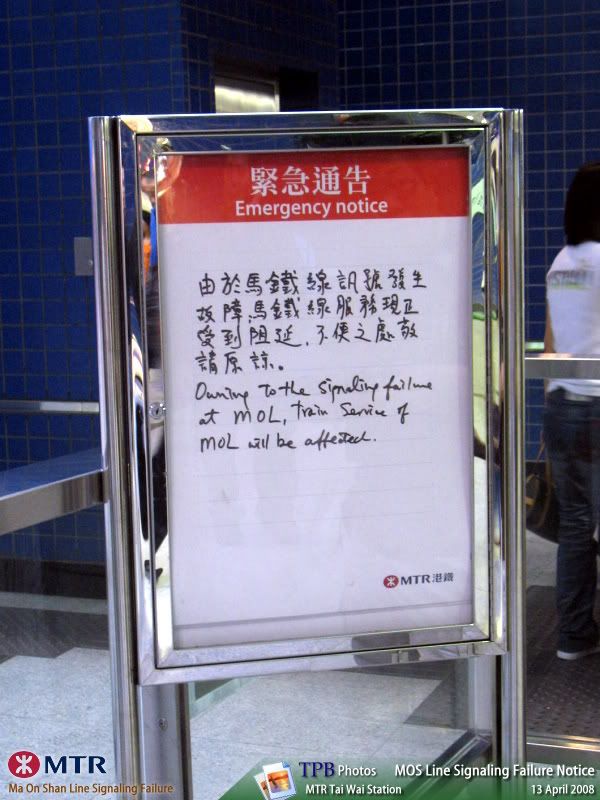 緊急通告
Emergency notice
由於馬鐵線訊號發生
故障馬鐵線服務現正
受到阻延，不便之處敬
請原諒。
Owning to the signaling failure
at MOL, train service of
MOL will be affected.
MTR港鐵
MTR
Ma On Shan Line Signaling Failure
TPB Photos MOS Line Signaling Failure Notice
MTR Tai Wai Station 13 April 2008